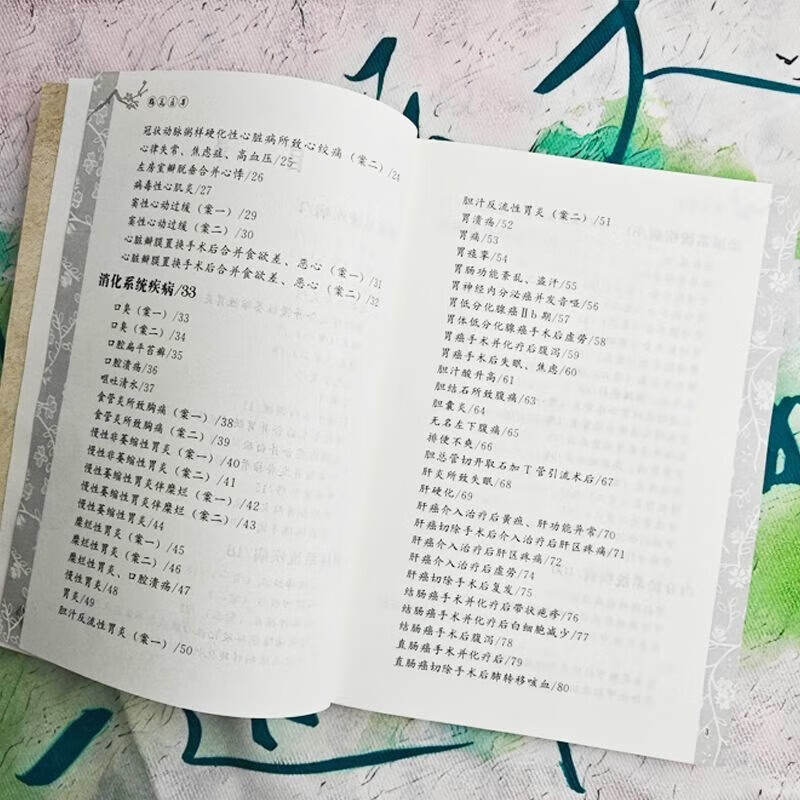 冠状动脉粥样硬化性心脏病所致心绞痛（案二）/24
心律失常、焦虑症、高血压/25
左房室瓣脱垂合并心悸/26
病毒性心肌炎/27
窦性心动过缓（案一）/29
窦性心动过缓（案二）/30
心脏瓣膜置换手术后合并食欲差、恶心（案一）/31
心脏瓣膜置换手术后合并食欲差、恶心（案二）/32
消化系统疾病/33
口臭（案一）/33
口臭（案二）/34
口腔扁平苔藓/35
口腔溃疡/36
呕吐清水/37
食管炎所致胸痛（案一）/38
食管炎所致胸痛（案二）/39
慢性非萎缩性胃炎（案一）/40
慢性非萎缩性胃炎（案二）/41
慢性萎缩性胃炎伴糜烂（案一）/42
慢性萎缩性胃炎伴糜烂（案二）/43
慢性萎缩性胃炎/44
糜烂性胃炎（案一）/45
糜烂性胃炎（案二）/46
糜烂性胃炎、口腔溃疡/47
慢性胃炎/48
胃炎/49
胆汁反流性胃炎（案一）/50
胆汁反流性胃炎（案二）/51
胃溃疡/52
胃痛/53
胃痉挛/54
胃肠功能紊乱、盗汗/55
胃神经内分泌癌并发音哑/56
胃低分化腺癌Ⅱb期/57
胃体低分化腺癌手术后虚劳/58
胃癌手术并化疗后腹泻/59
胃癌手术后失眠、焦虑/60
胆汁酸升高/61
胆结石所致腹痛/63
胆囊炎/64
无名左下腹痛/65
排便不爽/66
胆总管切开取石加T管引流术后/67
肝炎所致失眠/68
肝硬化/69
肝癌介入治疗后黄疸、肝功能异常/70
肝癌切除手术后介入治疗后肝区疼痛/71
肝癌介入治疗后肝区疼痛/72
肝癌介入治疗后虚劳/74
肝癌切除手术后复发/75
结肠癌手术并化疗后带状疱疹/76
结肠癌手术并化疗后白细胞减少/77
结肠癌手术后腹泻/78
直肠癌手术并化疗后/79
直肠癌切除手术后肺转移咳血/80
3